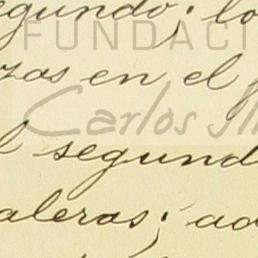 egundo; lo
FUNDACI
zas en el
Carlos
l segund
aleras; ad